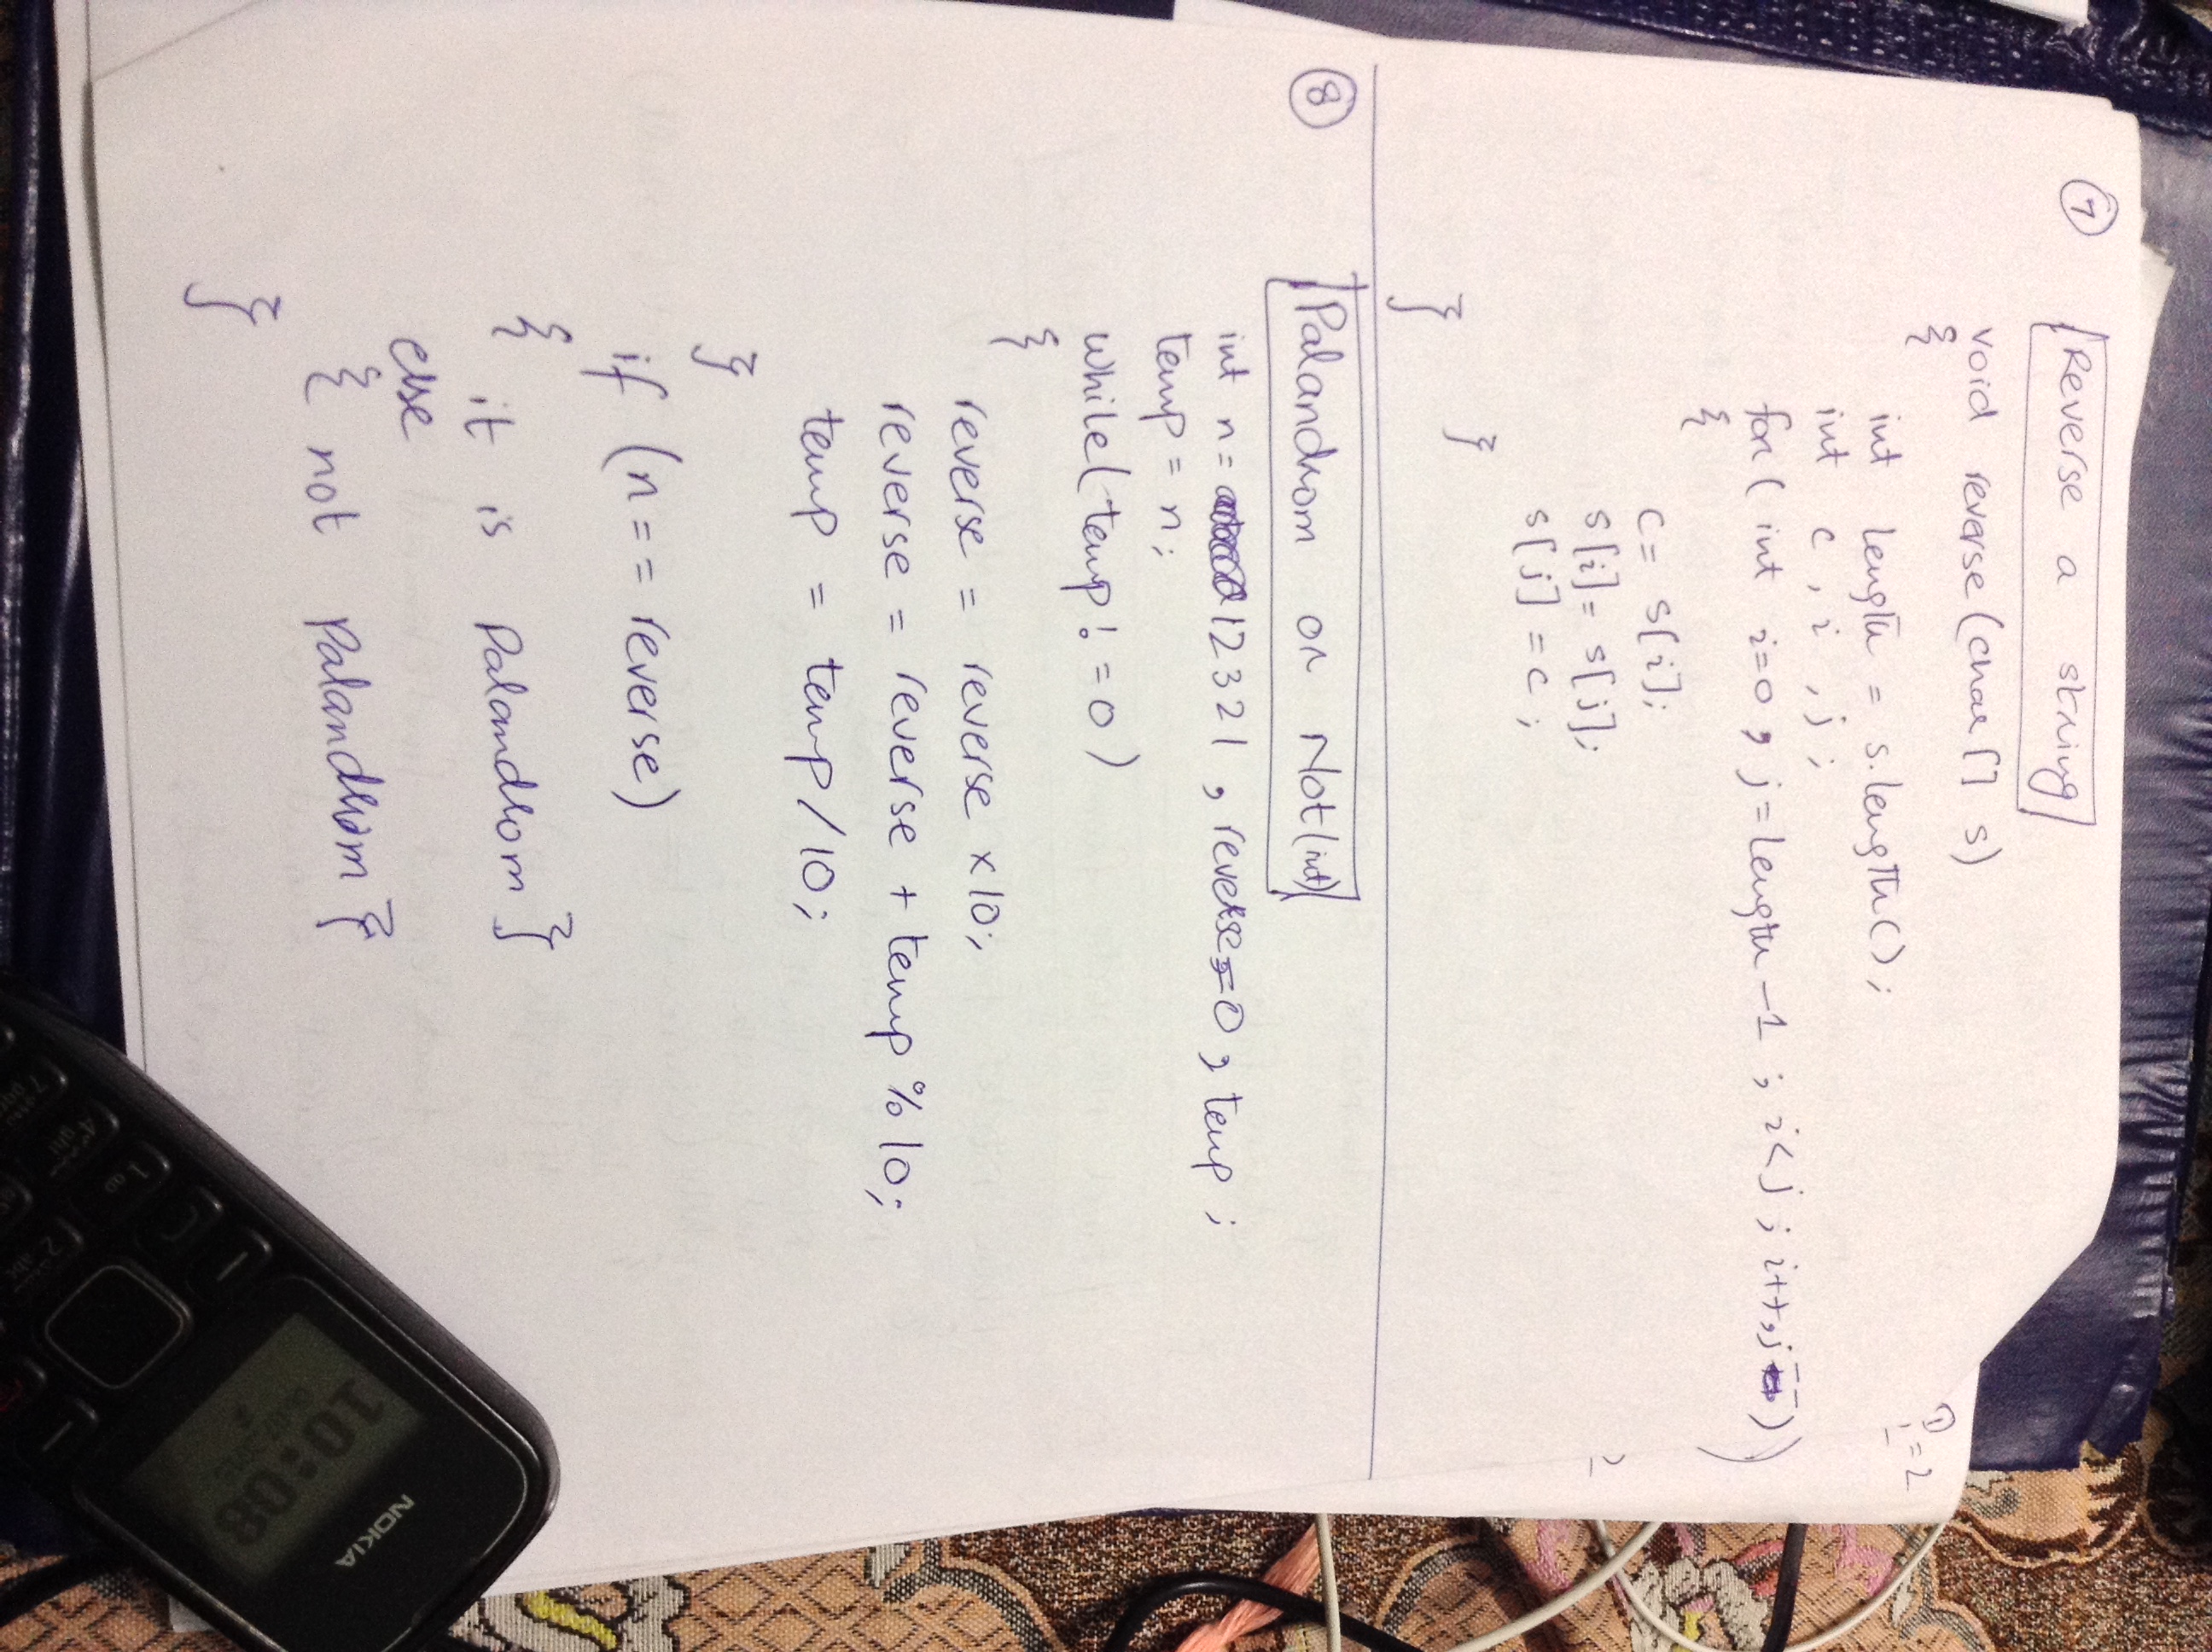 7 Reverse a string
void reverse (char [] s)
{
int length = s.length();
int c, i, j;
for( int i=0, j=length-1; i<j; i++, j--)
{
c= s[i];
s[i]= s[j];
s[j]=c;
}
}
8 Palandrom or Not (int)
int n= 12321, reverse=0, temp;
temp = n;
while(temp!=0)
{
reverse = reverse x10;
reverse = reverse + temp % 10;
temp = temp/10;
}
if (n== reverse)
{ it is Palandrom }
else
{ not Palandrom }
}
=2
NOKIA
10:08